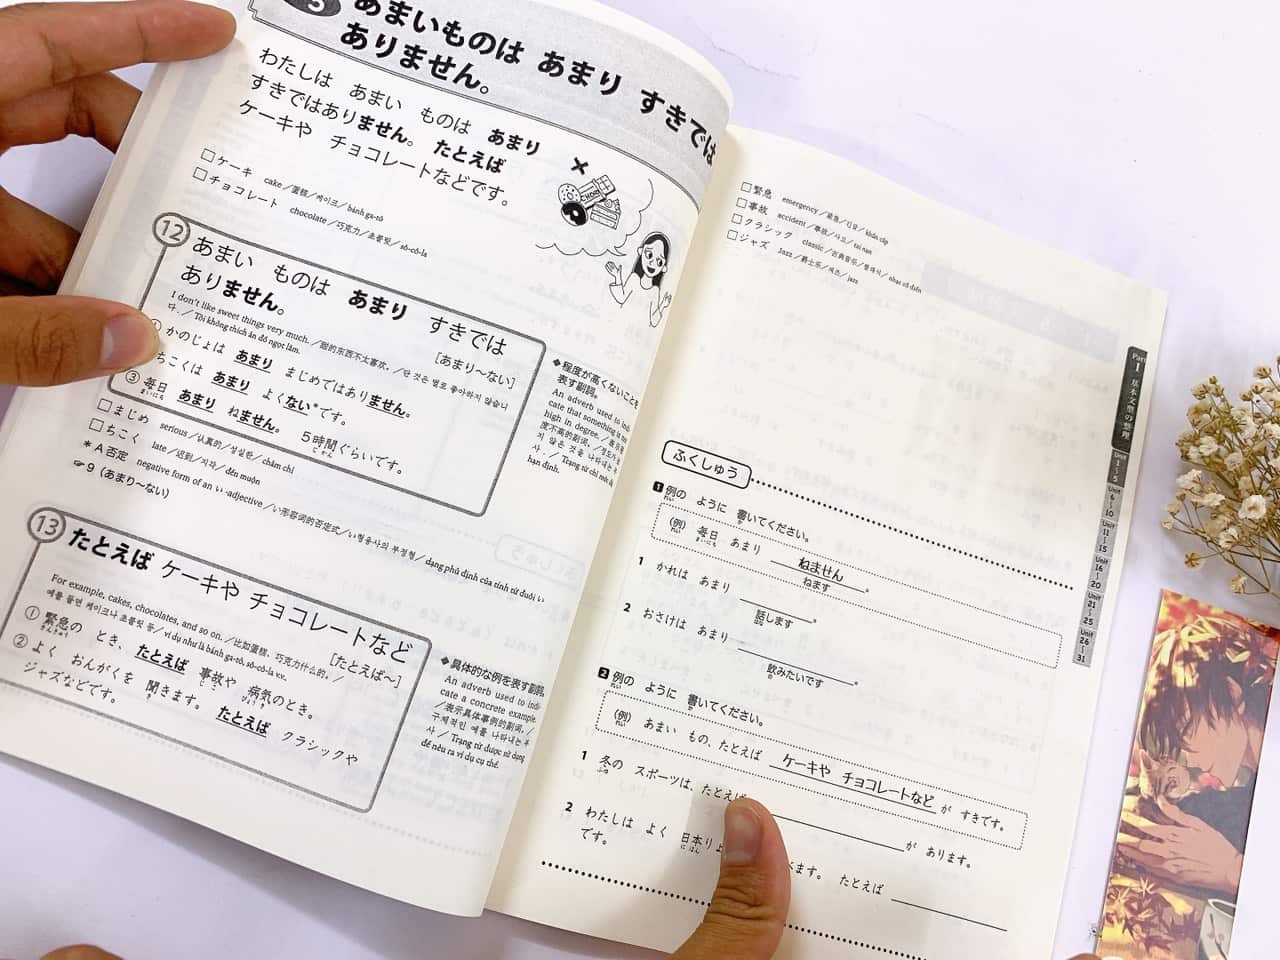 5 あまいものは あまり すきでは
ありません。
わたしは あまい ものは あまり
すきではありません。 たとえば
ケーキや チョコレートなどです。
□ケーキ cake／蛋糕／케이크／bánh ga-tô
□チョコレート chocolate／巧克力／초콜릿／sô-cô-la
⑫ あまい ものは あまり すきでは
ありません。 [あまり～ない]
I don't like sweet things very much.／甜的东西不太喜欢。／단 것은 별로 좋아하지 않습니
다.／Tôi không thích ăn đồ ngọt lắm.
① かのじょは あまり まじめではありません。
ちこくは あまり よくない*です。
③ 毎日 あまり ねません。 5時間ぐらいです。
まいにち じかん
◆程度が高くないことを
表す副詞。
An adverb used to indi-
cate that something is not
high in degree.／表示程
度不高的副词。／정도가 높
지 않은 것을 나타내는 부
사.／Trạng từ chỉ mức độ
hạn định.
□まじめ serious／认真的／성실한／chăm chỉ
□ちこく late／迟到／지각／đến muộn
*A否定 negative form of an い-adjective／い形容词的否定式／い형용사의 부정형／dạng phủ định của tính từ đuôi い
☞9 (あまり～ない)
⑬ たとえば ケーキや チョコレートなど
[たとえば～]
For example, cakes, chocolates, and so on.／比如蛋糕、巧克力什么的。／
예를 들면 케이크나 초콜릿 등／ví dụ như là bánh ga-tô, sô-cô-la v.v.
① 緊急の とき、たとえば 事故や 病気のとき。
きんきゅう じこ びょうき
② よく おんがくを 聞きます。 たとえば クラシックや
き
ジャズなどです。
◆具体的な例を表す副詞。
An adverb used to indi-
cate a concrete example.
／表示具体事例的副词。／
구체적인 예를 나타내는 부
사／Trạng từ được sử dụng
để nêu ra ví dụ cụ thể.
□緊急 emergency／紧急／긴급／khẩn cấp
□事故 accident／事故／사고／tai nạn
□クラシック classic／古典音乐／클래식／nhạc cổ điển
□ジャズ Jazz／爵士乐／재즈／jazz
Part
1
基本文型の整理
Unit
1～5
Unit
6～10
Unit
11～15
Unit
16～20
Unit
21～25
Unit
26～31
ふくしゅう
1 例の ように 書いてください。
れい か
(例) 毎日 あまり ねません。
れい まいにち ねます
1 かれは あまり 。
話します
はな
2 おさけは あまり 。
飲みたいです
の
2 例の ように 書いてください。
れい か
(例) あまい もの、たとえば ケーキや チョコレートなど が すきです。
れい
1 冬の スポーツは、たとえば が あります。
ふゆ
2 わたしは よく 日本りょ きます。 たとえば
にほん
です。